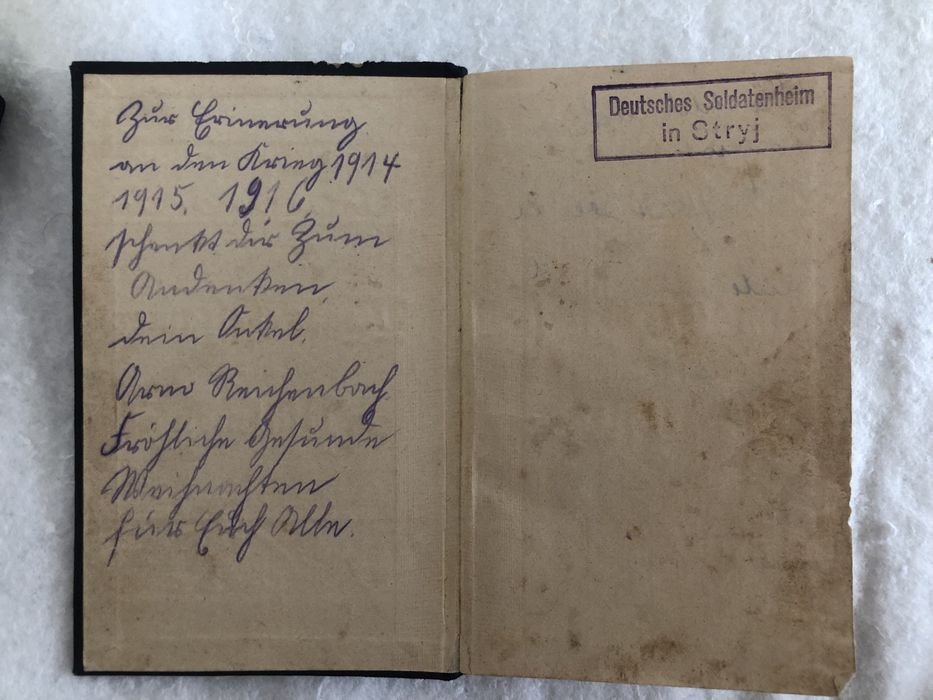 Zur Erinerung
an den Krieg 1914
1915. 1916
schenkt dir Zum
Andenken
dein Onkel.
Arno Reichenbach
Fröhliche Gesunde
Weihnachten
für Euch Alle.
Deutsches Soldatenheim
in Stryj